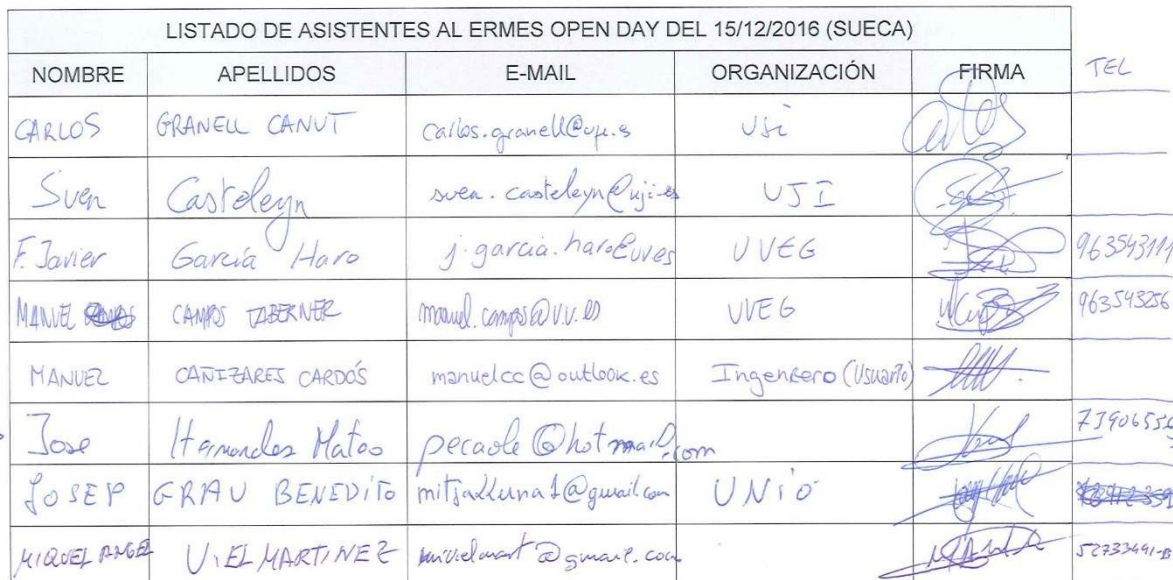 LISTADO DE ASISTENTES AL ERMES OPEN DAY DEL 15/12/2016 (SUECA)
NOMBRE APELLIDOS E-MAIL ORGANIZACIÓN FIRMA TEL
CARLOS GRANELL CANUT carlos.granell@uji.es UJI
Sven Casteleyn sven.casteleyn@uji.es UJI
F. Javier García Haro j.garcia.haro@uv.es UVEG 963543111
MANUEL CAMPOS TABERNER manuel.campos@uv.es UVEG 963543256
MANUEL CAÑIZARES CARDÓS manuelcc@outlook.es Ingeniero (Usuario)
Jose pecaole@hotmail.com
JOSEP GRAU BENEDITO mitjalluna1@gmail.com UNIÓ
MIQUEL ANGEL VIEL MARTINEZ 52733491-B